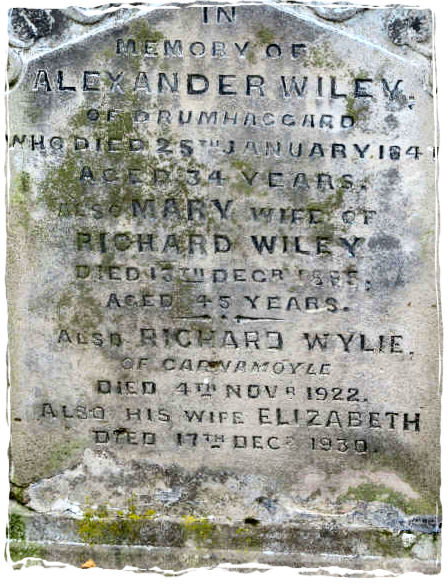 IN
MEMORY OF
ALEXANDER WILEY,
OF DRUMHAGGARD
WHO DIED 25TH JANUARY 184
AGED 34 YEARS.
ALSO MARY WIFE OF
RICHARD WILEY
DIED 13TH DECR
AGED 45 YEARS.
ALSO RICHARD WYLIE,
OF CARNAMOYLE
DIED 4TH NOVR 1922.
ALSO HIS WIFE ELIZABETH
DIED 17TH DECR 1930.